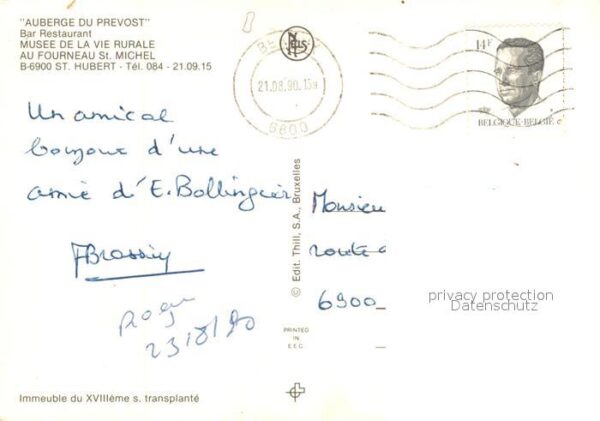 "AUBERGE DU PREVOST"
Bar Restaurant
MUSEE DE LA VIE RURALE
AU FOURNEAU St. MICHEL
B-6900 ST. HUBERT - Tél. 084 - 21.09.15
21.08.90.
6800
14F
BELGIQUE-BELGIË
Un amical
bonjour d'une
amie d'E. Bollinguier
Monsieu
route
6900
© Edit. Thill, S.A., Bruxelles
privacy protection
Datenschutz
23/8/90
PRINTED
IN
E.E.C.
Immeuble du XVIIIéme s. transplanté